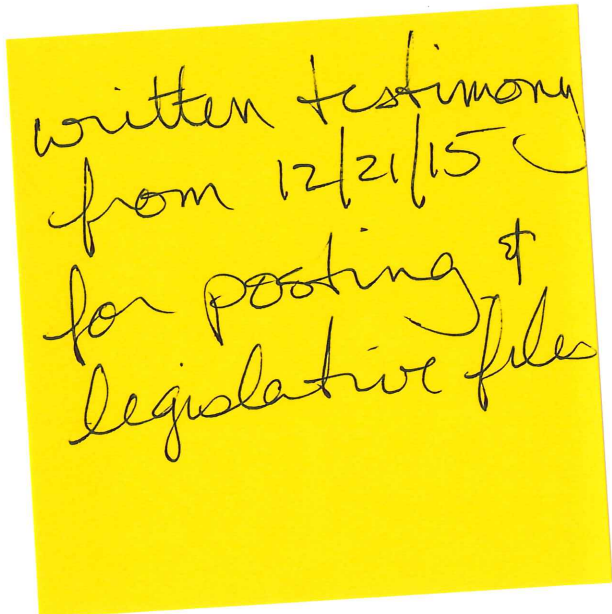 written testimony
from 12/21/15
for posting &
legislative files